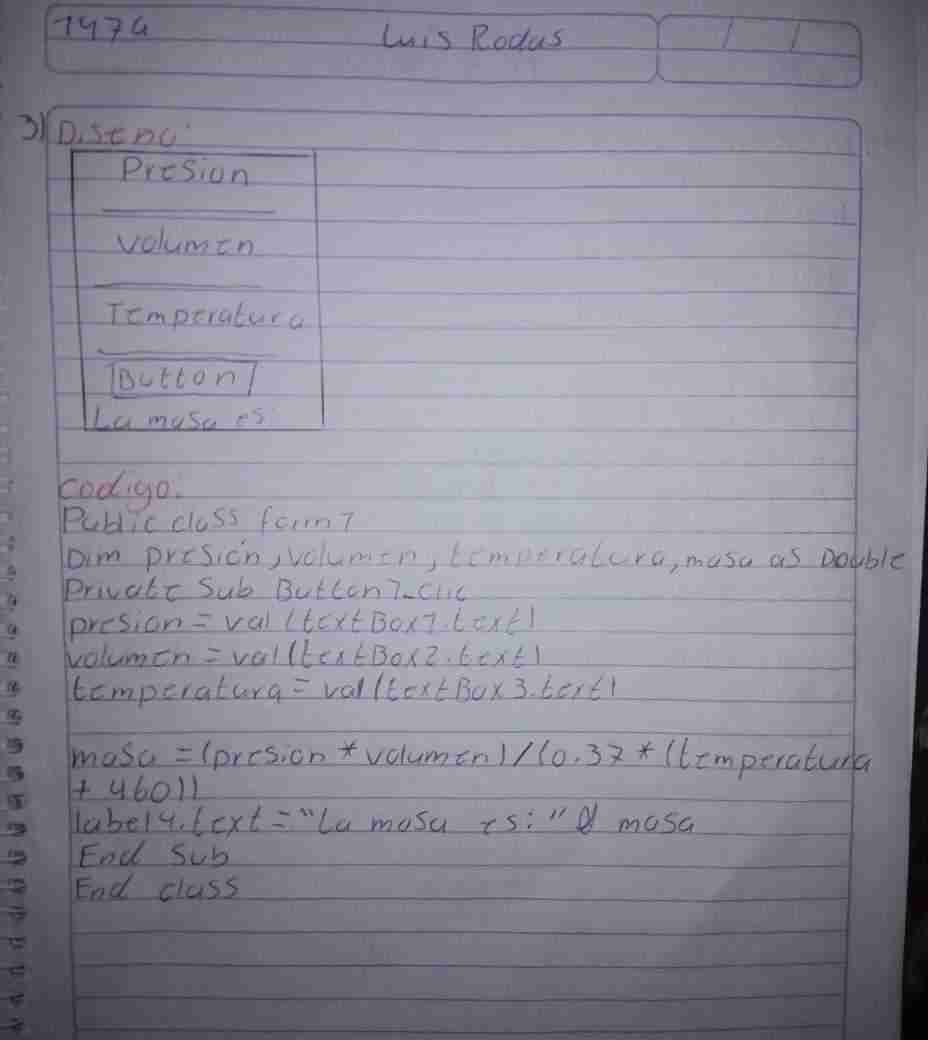 1974
Luis Rodas
3) Diseño:
Presion
Volumen
Temperatura
Button
La masa es:
Codigo:
Public class form1
Dim presión, volumen, temperatura, masa as Double
Private Sub Button1_Clic
presion = val (textBox1.text)
volumen = val(textBox2.text)
temperatura = val(textBox3.text)
masa = (presion * volumen) / (0.37 * (temperatura
+ 460))
label4.text = "La masa es: " & masa
End Sub
End class